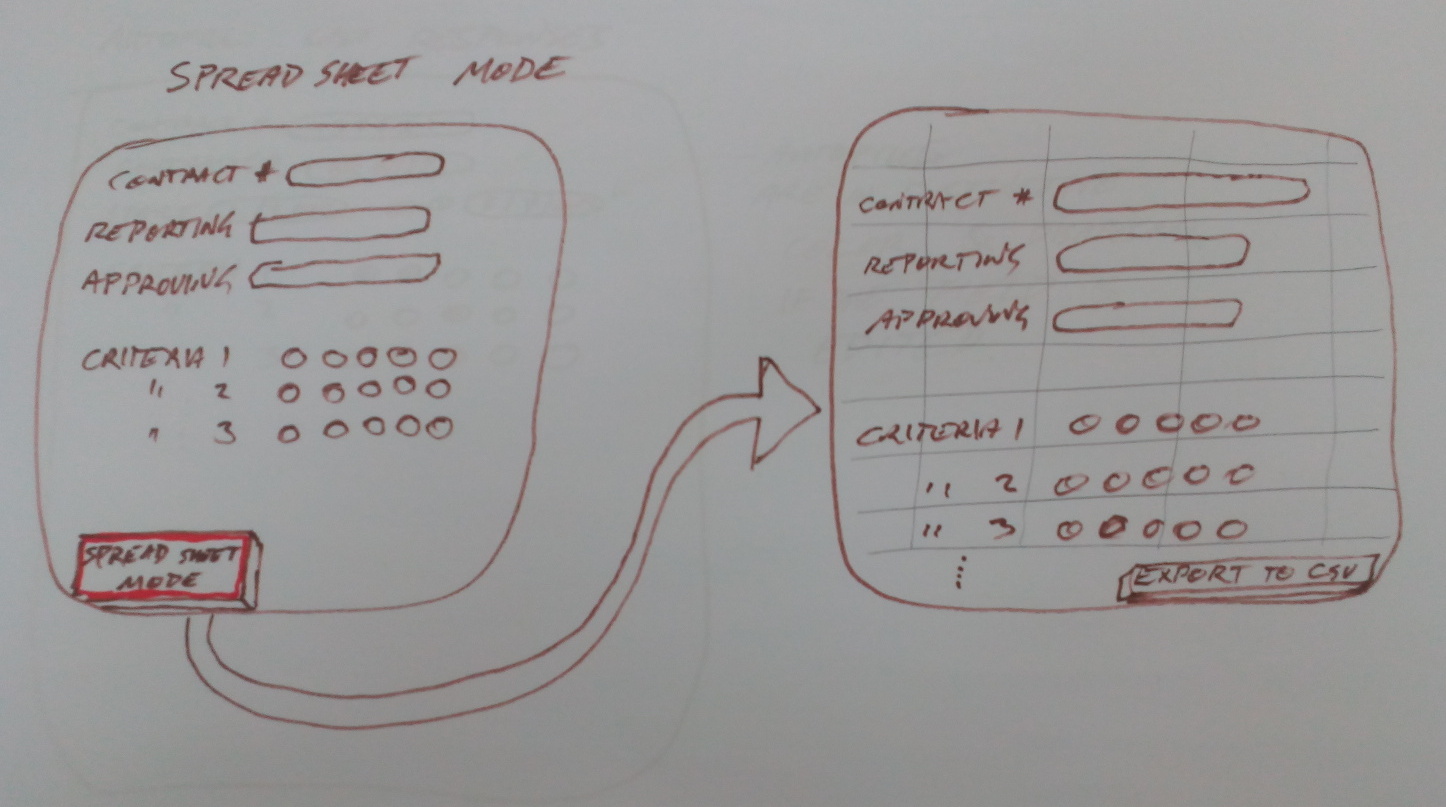 SPREAD SHEET MODE
CONTRACT #
REPORTING
APPROVING
CRITERIA 1
" 2
" 3
SPREAD SHEET
MODE
CONTRACT #
REPORTING
APPROVING
CRITERIA 1
" 2
" 3
EXPORT TO CSV